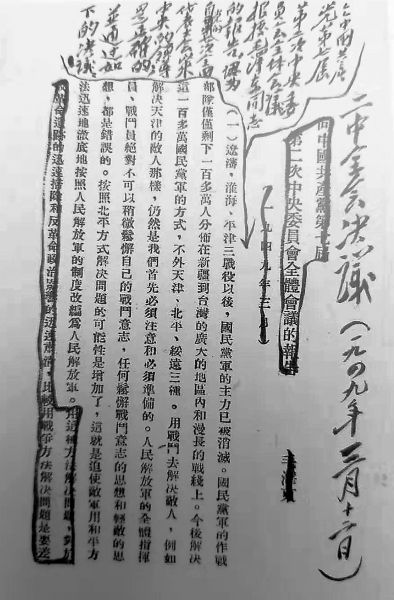 二中全会決議（一九四九年三月十三日）
向中國共產黨第七屆
第二次中央委員會全體會議的報告
一九四九年三月
第二次中央委
员会全体会議
根据毛澤东同志
的报告認为
代表大会以来
中央的領導
是正確的
並通过如
下的决議
（一）遼瀋，淮海、平津三戰役以後，國民黨軍的主力已被消滅。國民黨軍的作戰
部隊僅僅剩下一百多萬人分佈在新疆到台灣的廣大的地區內和漫長的戰綫上。今後解決
這一百多萬國民黨軍的方式，不外天津、北平、綏遠三種。用戰鬥去解決敵人，例如
解決天津的敵人那樣，仍然是我們首先必須注意和必須準備的。人民解放軍的全體指揮
員、戰鬥員絕對不可以稍微鬆懈自己的戰鬥意志，任何鬆懈戰鬥意志的思想和輕敵的思
想，都是錯誤的。按照北平方式解決問題的可能性是增加了，這就是迫使敵軍用和平方
法迅速地澈底地按照人民解放軍的制度改編爲人民解放軍。用這種方法解決問題，對於
反革命遺跡的迅速掃除和反革命政治影響的迅速肅清，比較用戰爭方法解決問題是要差